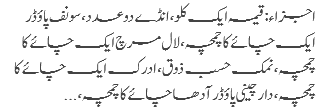 اجزاء: قیمہ ایک کلو، انڈے دو عدد، سونف پاؤڈر
ایک چائے کا چمچہ، لال مرچ ایک چائے کا
چمچہ، نمک حسب ذوق، ادرک ایک چائے کا
چمچہ، دار چینی پاؤڈر آدھا چائے کا چمچہ، ...